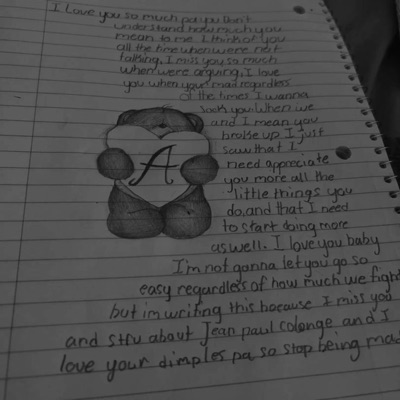 I love you so much pa you Don't
understand how much you
mean to me. I think of you
all the time when were not
talking, I miss you so much
when were arguing, I love
you when your mad regardless
of the times I wanna
sock you. When we
and I mean you
broke up I just
saw that I
need appreciate
you more all the
little things you
do, and that I need
to start doing more
as well. I love you baby
I'm not gonna let you go so
easy regardless of how much we fight
but im writing this because I miss you
and stfu about Jean paul colonge and I
love your dimples pa so stop being mad
A